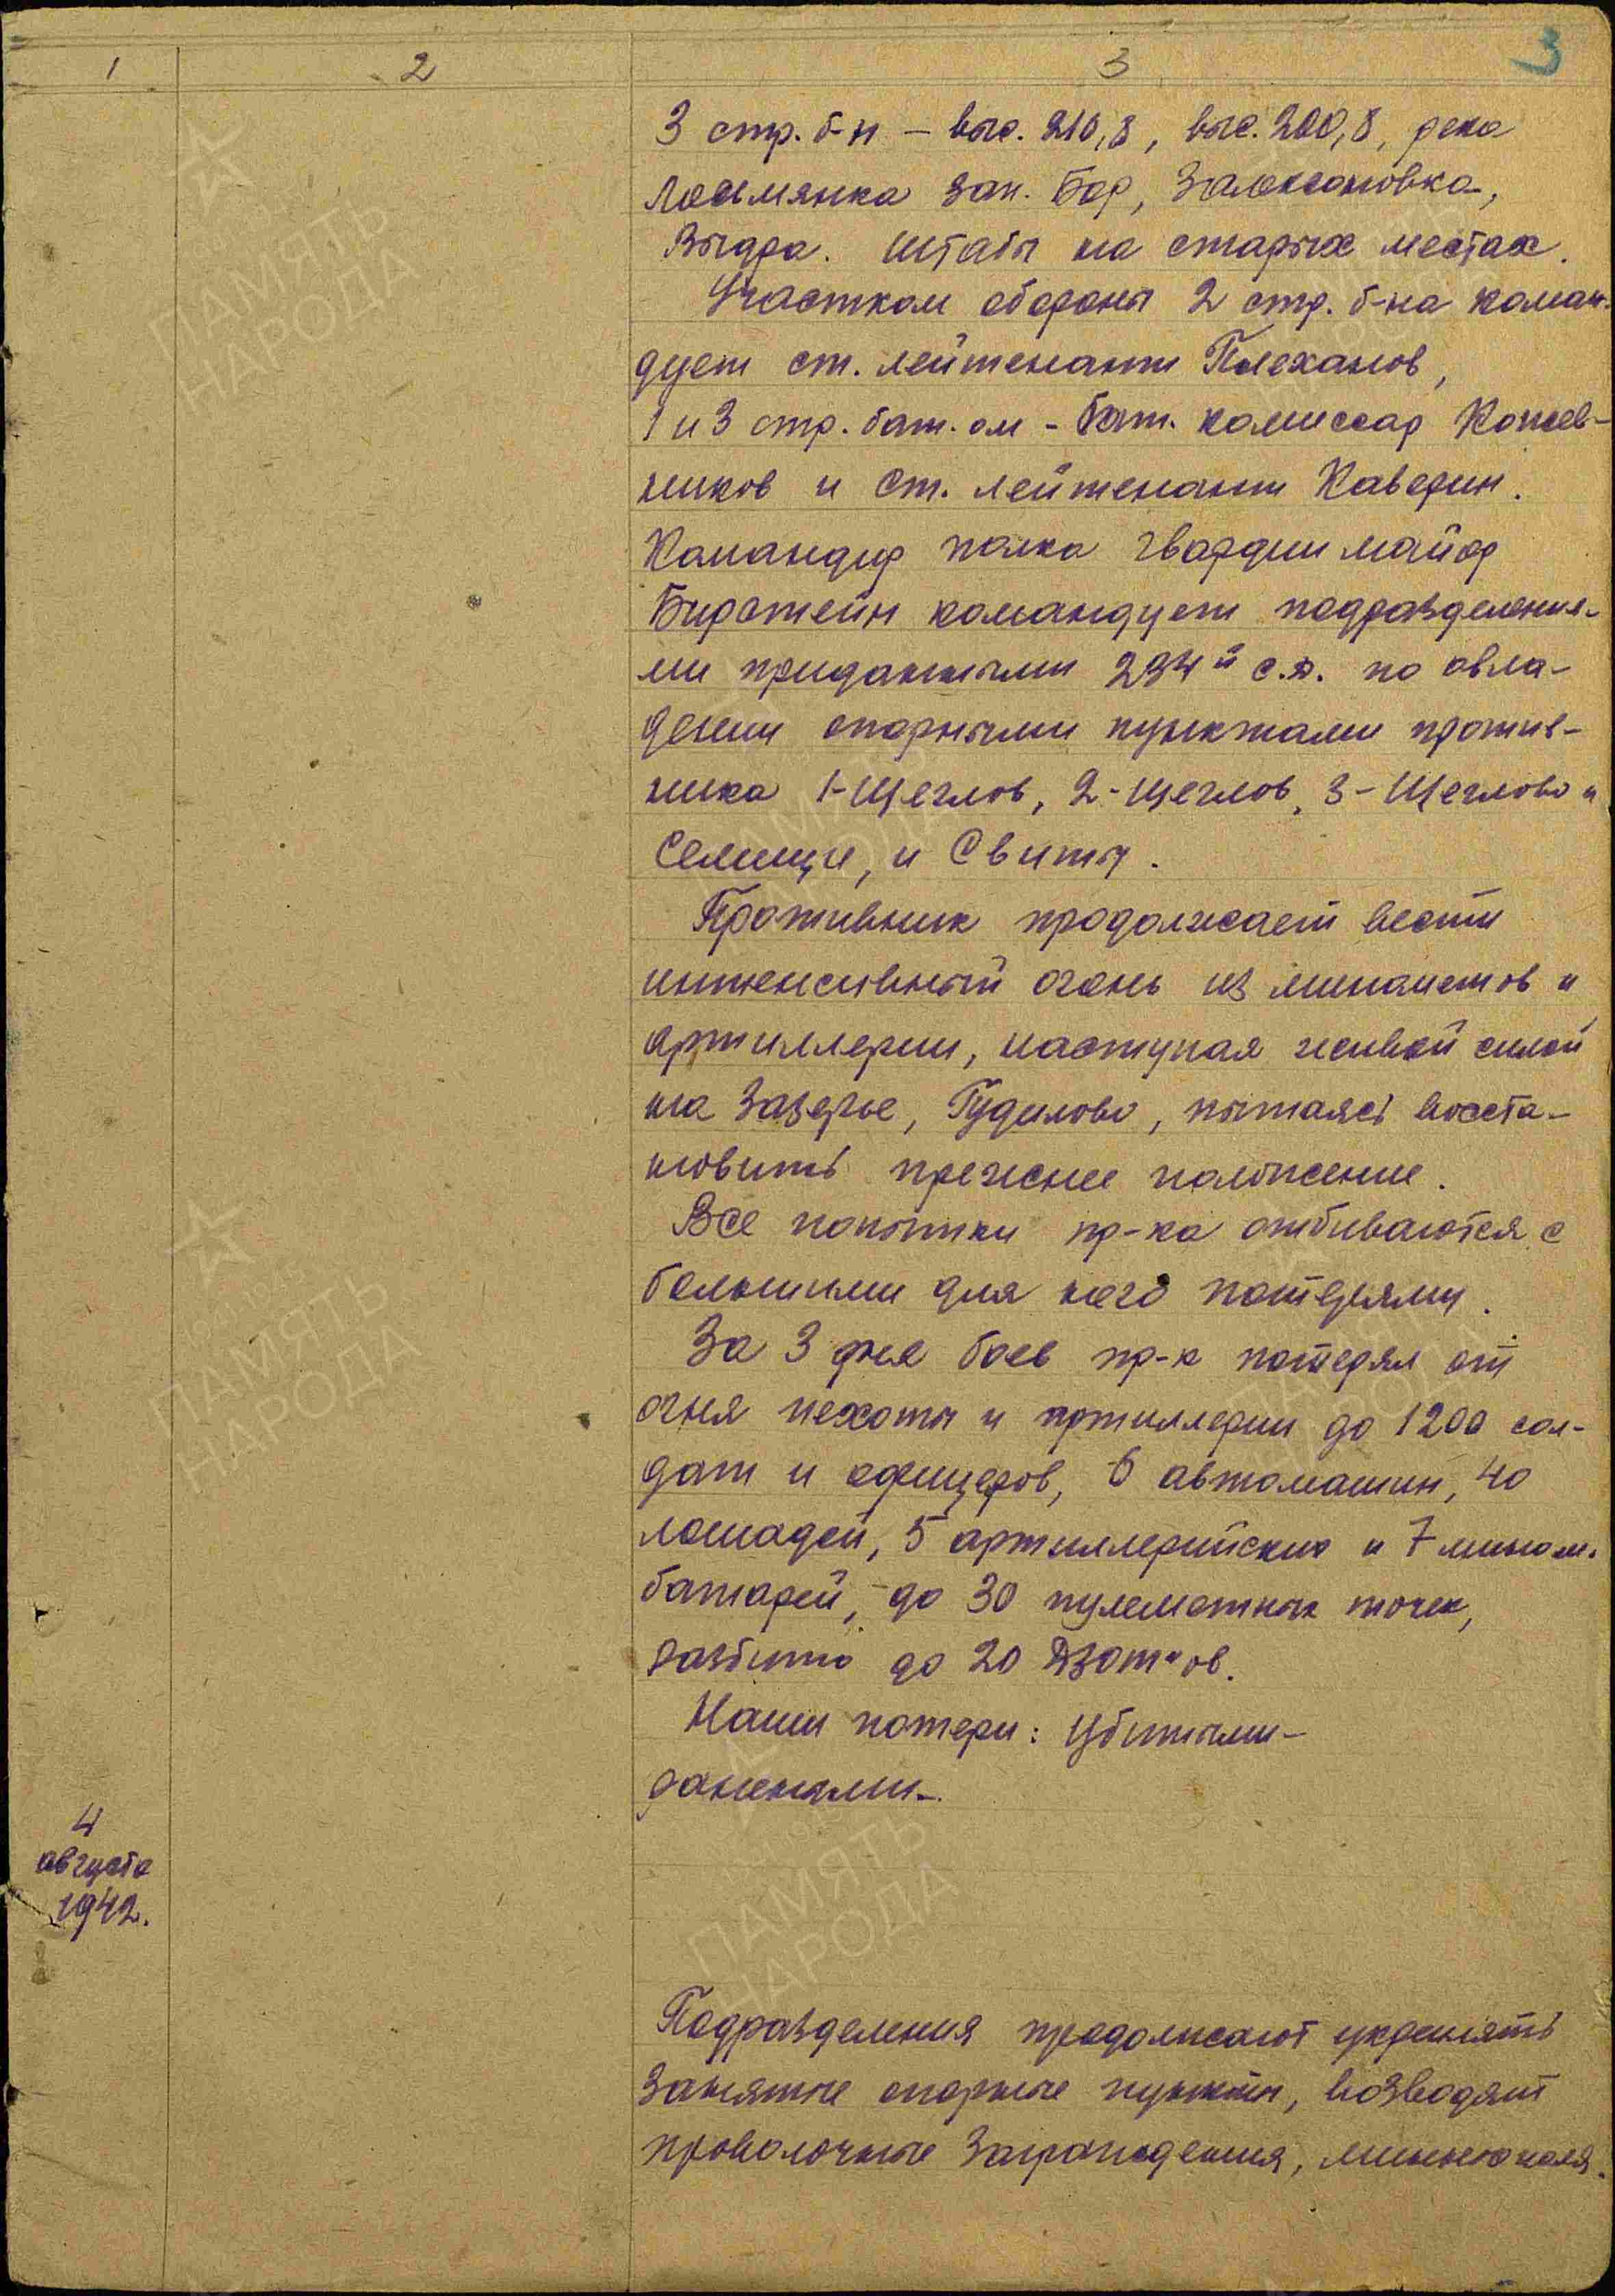 1 2 3 3
3 стр. б-н – выс. 210,8, выс. 200,8, река
Лосьмянка зап. Бор,
Выдра. Штабы на старых местах.
Участком обороны 2 стр. б-на коман-
дует ст. лейтенант Плеханов,
1 и 3 стр. бат. ом - бат. комиссар Кожев-
ников и ст. лейтенант Каверин.
Командир полка гвардии майор
Бирстейн командует подразделения-
ми приданными 234й с.д. по овла-
дении опорными пунктами против-
ника 1-Щеглов, 2-Щеглов, 3-Щеглово и
Селище, и Свиты.
Противник продолжает вести
интенсивный огонь из минометов и
артиллерии, наступая живой силой
на Зазерье, Гудилово, пытаясь восста-
новить прежнее положение.
Все попытки пр-ка отбиваются с
большими для него потерями.
За 3 дня боев пр-к потерял от
огня пехоты и артиллерии до 1200 сол-
дат и офицеров, 6 автомашин, 40
лошадей, 5 артиллерийских и 7 мином.
батарей, до 30 пулеметных точек,
разбито до 20 Дзот"ов.
Наши потери: Убитыми-
ранеными-.
4
августа
1942.
Подразделения продолжают укреплять
занятые опорные пункты, возводят
проволочные заграждения, минные поля.
ПАМЯТЬ
НАРОДА
ПАМЯТЬ
НАРОДА
ПАМЯТЬ
НАРОДА